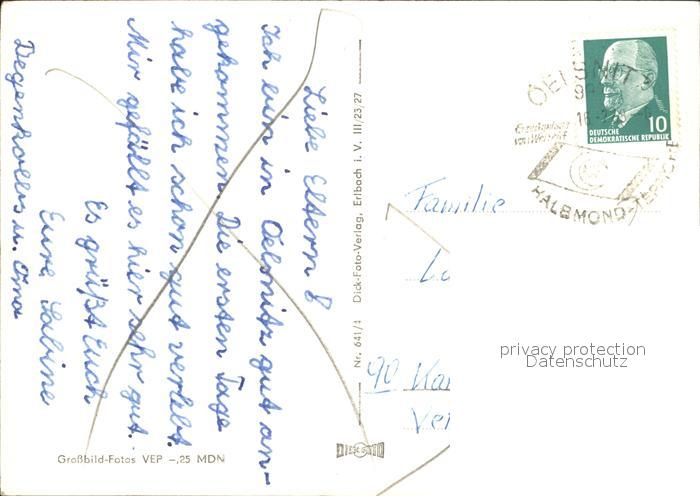 Liebe Eltern!
Ich bin in Oelsnitz gut an-
gekommen. Die ersten Tage
habe ich schon gut verlebt.
Mir gefällt es hier sehr gut.
Es grüßt Euch
Eure Sabine
Degenkolbs u. Oma
Großbild-Fotos VEP -,25 MDN
Nr. 641/4 Dick-Foto-Verlag, Erlbach i. V. III/23/27
DICK FOTO
OELSNITZ
HALBMOND-TEPPICHE
10
DEUTSCHE
DEMOKRATISCHE REPUBLIK
Familie
90 Kar
privacy protection
Datenschutz